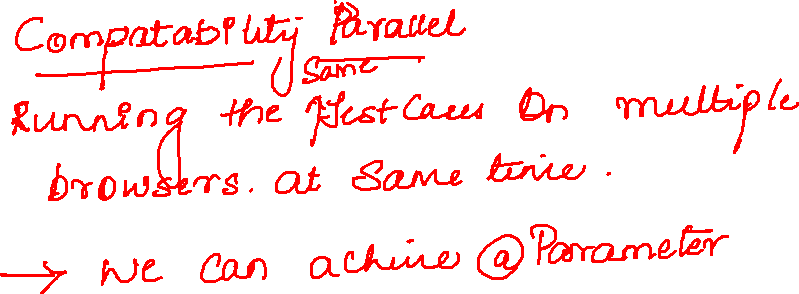 Compatability Parallel
Same
Running the Test Cases On multiple
browsers. at Same time.
→ We can achive @Parameter